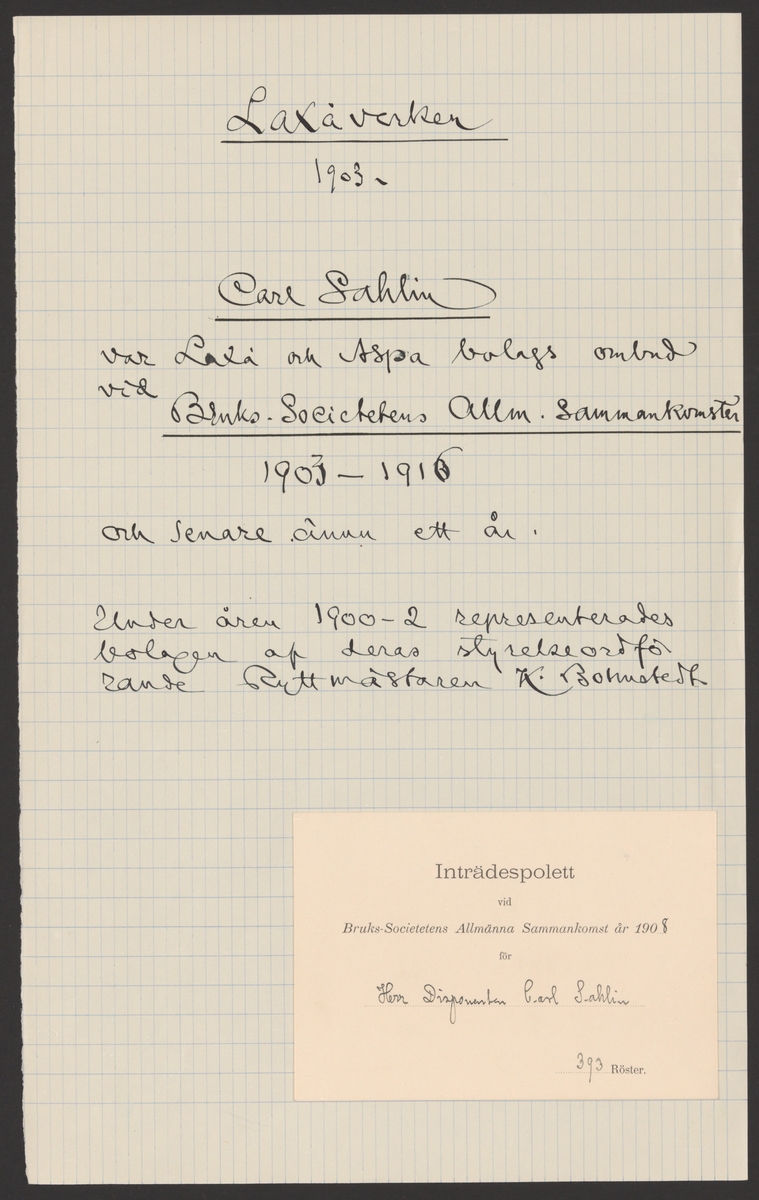 Laxåverken
1903.
Carl Sahlin
var Laxå och Aspa bolags ombud
vid
Bruks-Societetens Allm. Sammankomster
1903 – 1916
och senare ännu ett år.
Under åren 1900-2 representerades
bolagen af deras styrelseordfö
rande Ryttmästaren K. Bohnstedt
Inträdespolett
vid
Bruks-Societetens Allmänna Sammankomst år 1908
för
Herr Disponenten Carl Sahlin
393 Röster.